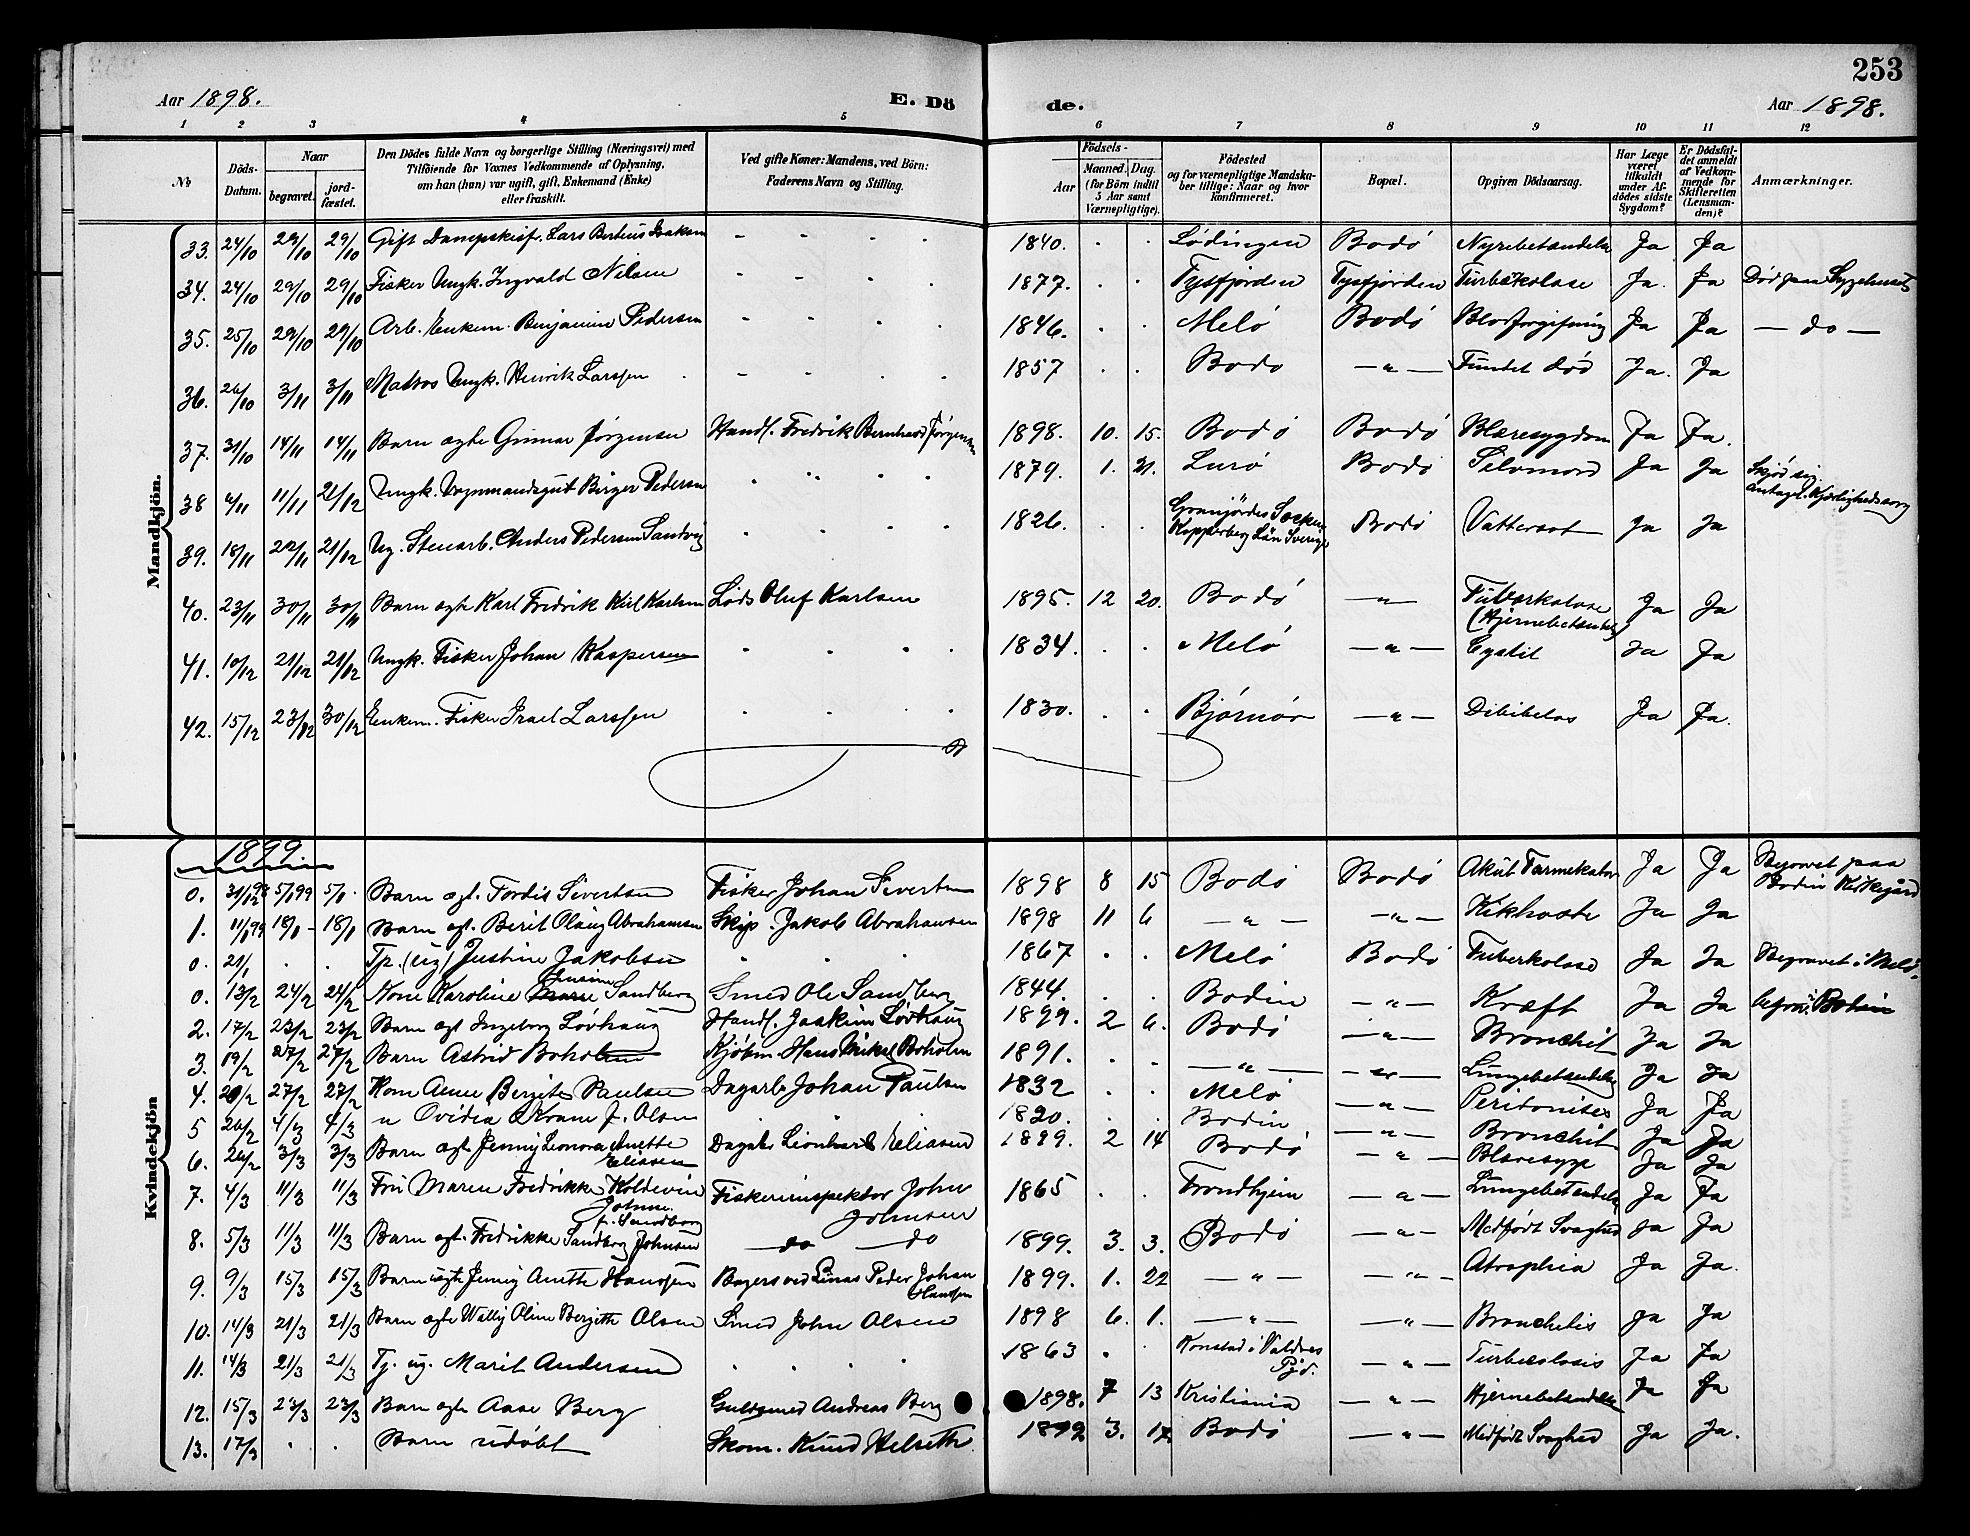 253
Aar 1898. E. Dö de. Aar 1898.
1 2 3 4 5 6 7 8 9 10 11 12
No
Döds-Datum.
Naar
begravet.
jord-fæstet.
Den Dödes fulde Navn og borgerlige Stilling (Næringsvei) med
Tilföiende for Voxnes Vedkommende af Oplysning,
om han (hun) var ugift, gift, Enkemand (Enke)
eller fraskilt.
Ved gifte Koner: Mandens, ved Börn:
Faderens Navn og Stilling.
Födsels-
Aar
Maaned. Dag.
(for Börn indtil
5 Aar samt
Værnepligtige).
Födested
og for værnepligtige Mandska-
ber tillige: Naar og hvor
konfirmeret.
Bopæl.
Opgiven Dödsaarsag.
Har Læge
været
tilkaldt
under Af-
dödes sidste
Sygdom?
Er Dödsfal-
det anmeldt
af Vedkom-
mende for
Skifteretten
(Lensman-
den)?
Anmærkninger.
Mandkjön.
33. 24/10 29/10 29/10 Gift Dampskisf. Lars Berteus Isaksen - - - - 1840. . . Lødingen Bodø Nyrebetændelse Ja Ja
34. 24/10 29/10 29/10 Fisker Ungk. Ingvald Nilsen - - - . 1877. . . Tysfjorden Tysfjorden Turbekolose Ja. Ja Død paa Sygehuset
35. 25/10 29/10 29/10 Arb. Enkem. Benjamin Pedersen - - . . 1846. . . Melø Bodø Blodforgiftning Ja Ja — do —
36. 26/10 3/11 3/11 Matros Ungk. Henrik Larssen - - . . 1857 . . Bodø — " — Fundet død Ja. Ja
37. 31/10 14/11 14/11 Barn ægte Gunnar Jørgensen Handl. Fredrik Bernhard Jørgensen 1898. 10. 15. Bodø Bodø Blæresygdom Ja Ja.
38 4/11 11/11 21/12 Ungk. Vognmandsgut Birger Pedersen . . . . 1879. 1. 21. Lurø Bodø Selvmord Ja Ja Skjød sig antagel. Kjærlighedssorg
39. 18/11 22/11 21/12 Ug. Stenarb. Anders Pedersen Sandvig . . . . 1826. . . Granjördes Socken Kopperberg Län Sverige Bodø Vattersot Ja Ja
40. 23/11 30/11 30/11 Barn ægte Karl Fredrik Kirl Karlsen Løds Oluf Karlsen 1895. 12 20. Bodø — " — Tuberkolose (Hjernebetændelse) Ja Ja
41. 10/12 21/12 21/12 Ungk. Fisker Johan Kaspersen . . . . 1834. . . Melø — " — Cystit Ja Ja
42. 15/12 23/12 30/12 Enkem. Fisker Israel Larssen . . . . 1830. . . Bjørnør — " — Dibibetas Ja Ja.
Kvindekjön
1899
0. 31/12 98 5/1 99 5/1. Barn ægt. Tordis Sivertsen Fisker Johan Sivertsen 1898 8 15 Bodø Bodø Akut Tarmekatar Ja Ja Begravet paa Bodin Kirkegård
1. 11/1 99 18/1 - 18/1 Barn ægt. Berit Olaug Abrahamsen Skip. Jakob Abrahamsen 1898 11 6 — " — — " — Kikhoste Ja Ja
0. 21/1 . . Tp. (ug) Justine Jakobsen . . . 1867 . . Melø Bodø Tuberkolose Ja Ja Begravet i Melø.
0. 13/2 24/2 24/2 Kone Karoline Marie Sandberg Smed Ole Sandberg 1844. . . Bodin — " — Kræft Ja Ja begrav. i Bodin
2. 17/2 23/2 23/2 Barn ægt Ingeborg Løvhaug Handl. Joakim Løvhaug 1899. 2 6. Bodø — " — Bronchit Ja Ja
3. 19/2 27/2 27/2 Barn Astrid Boholm Kjøbm. Hans Mikal Boholm 1891. . . — " — — " — Lungebetændelse Ja Ja
4. 20/2 27/2 27/2 Kone Anne Bergite Paulsen Dagarb. Johan Paulsen 1832 . . Melø — " — Peritonites Ja Ja
5 26/2 4/3 4/3 " Ovidia f. Olsen . . . 1820. . . Bodin — " — Bronchit Ja Ja
6. 26/2 3/3 3/3 Barn ægt. Jenny Leonora Anette Eliasen Dagarb. Leonhard Eliasen 1899. 2 14 Bodø — " — Blæresyge Ja Ja
7. 4/3 11/3 11/3 Fru Maren Fredrikke Koldevin Johnsen f. Sandborg Fiskeriinspektør John Johnsen 1865 . . Trondhjem — " — Lungebetændelse Ja Ja
8. 5/3 11/3 11/3 Barn ægt. Fredrikke Sandborg Johnsen — do — do 1899. 3. 3. Bodø — " — Medfødt Svaghed Ja Ja
9. 9/3 15/3 15/3 Barn uægte Jenny Anette Hanssen Bagersvend Linas Peder Johan Hanssen 1899. 1. 22 — " — — " — Atrophia Ja Ja.
10. 14/3 21/3 21/3 Barn ægte Wally Oline Bergitte Olsen Smed John Olsen 1898 6. 1. — " — — " — Bronchitis Ja Ja
11. 14/3 21/3 21/3 Tj. ug. Marit Andersen . . . . 1863 . . Konstad i Valdres Pgd. — " — Turbeslosis Ja Ja
12. 15/3 23/3 23/3 Barn ægte Aase Berg Guldsmed Andreas Berg 1898. 7 13 Kristiania — " — Hjernebetændelse Ja Ja
13. 17/3 . . Barn udøbt Skom. Knud Helseth 1899 3. 17. Bodø — " — Medfødt Svaghed Ja Ja.